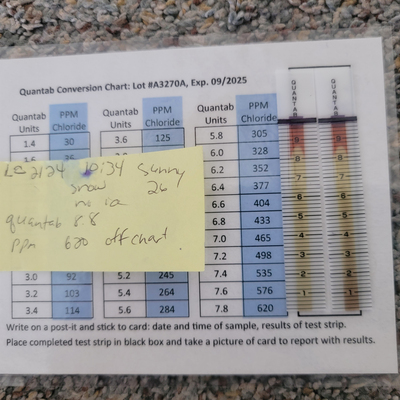 Quantab Conversion Chart: Lot #A3270A, Exp. 09/2025
Quantab Units PPM Chloride Quantab Units PPM Chloride Quantab Units PPM Chloride
1.4 30 3.6 125 5.8 305
6.0 328
6.2 352
6.4 377
6.6 404
6.8 433
7.0 465
7.2 498
3.0 92 5.2 245 7.4 535
3.2 103 5.4 264 7.6 576
3.4 114 5.6 284 7.8 620
sunny
snow 26
quantab 8.8
PPM 620 off chart
QUANTAB
9
8
7
6
5
4
3
2
1
QUANTAB
9
8
7
6
5
4
3
2
1
Write on a post-it and stick to card: date and time of sample, results of test strip.
Place completed test strip in black box and take a picture of card to report with results.